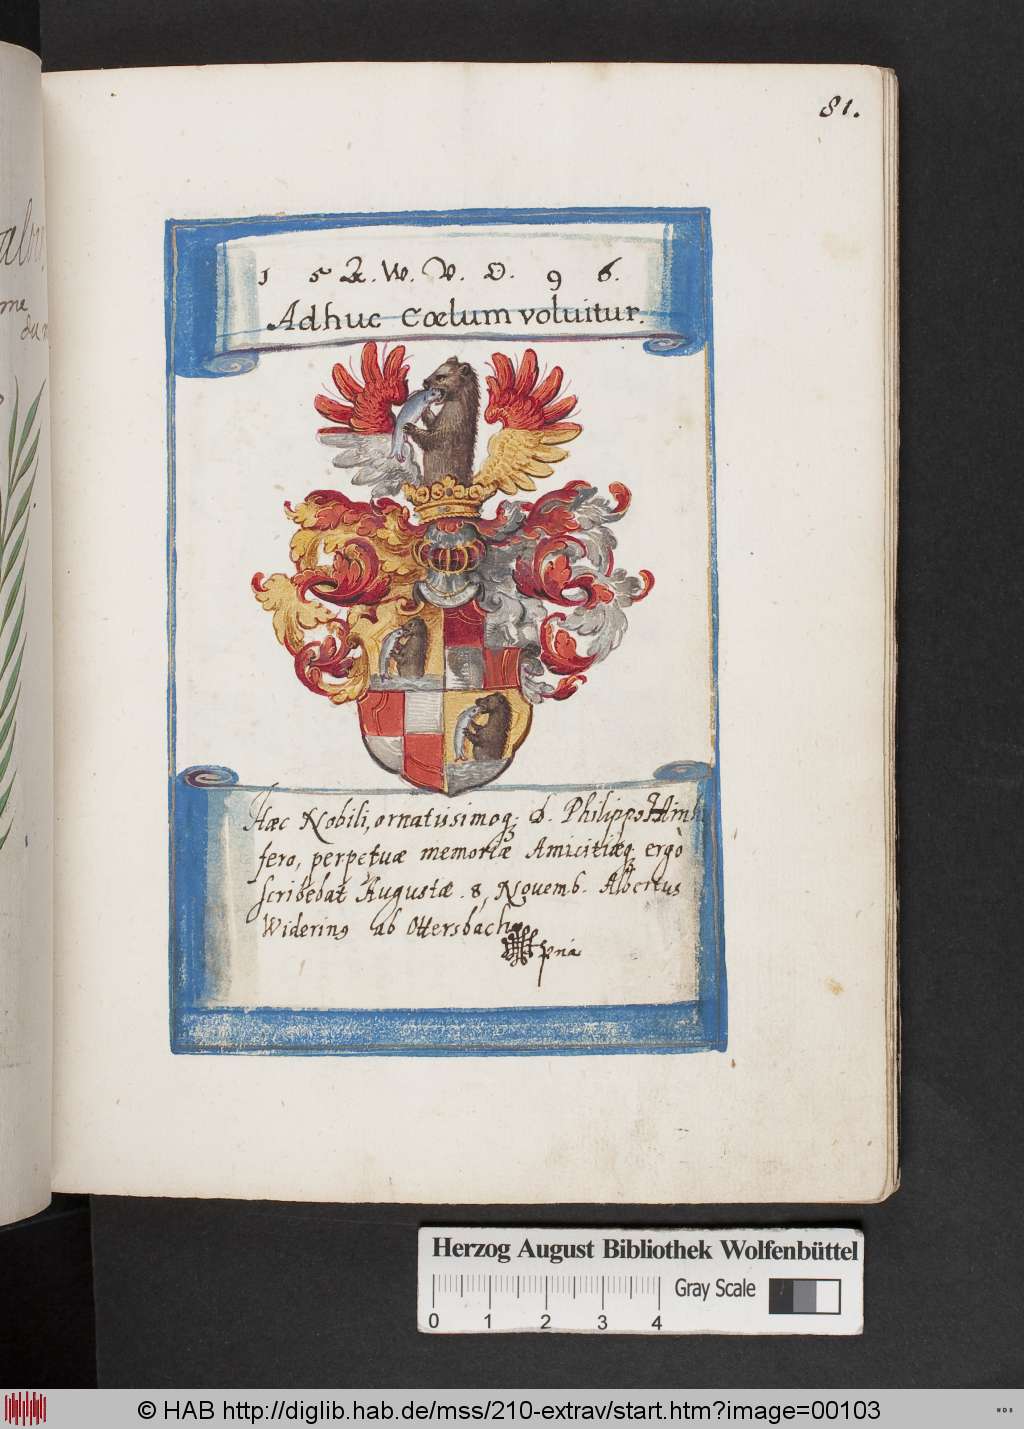 81.
1 5 A. W. V. O. 9 6.
Adhuc Cœlum voluitur.
Hæc Nobili, ornatissimoqꝫ d. Philippo
fero, perpetuæ memoriæ Amicitiæqꝫ ergò
scribebat Augustæ . 8, Novemb. Albertus
Widering9 ab Ottersbach
ppria
me
Herzog August Bibliothek Wolfenbüttel
Gray Scale
0 1 2 3 4
© HAB http://diglib.hab.de/mss/210-extrav/start.htm?image=00103